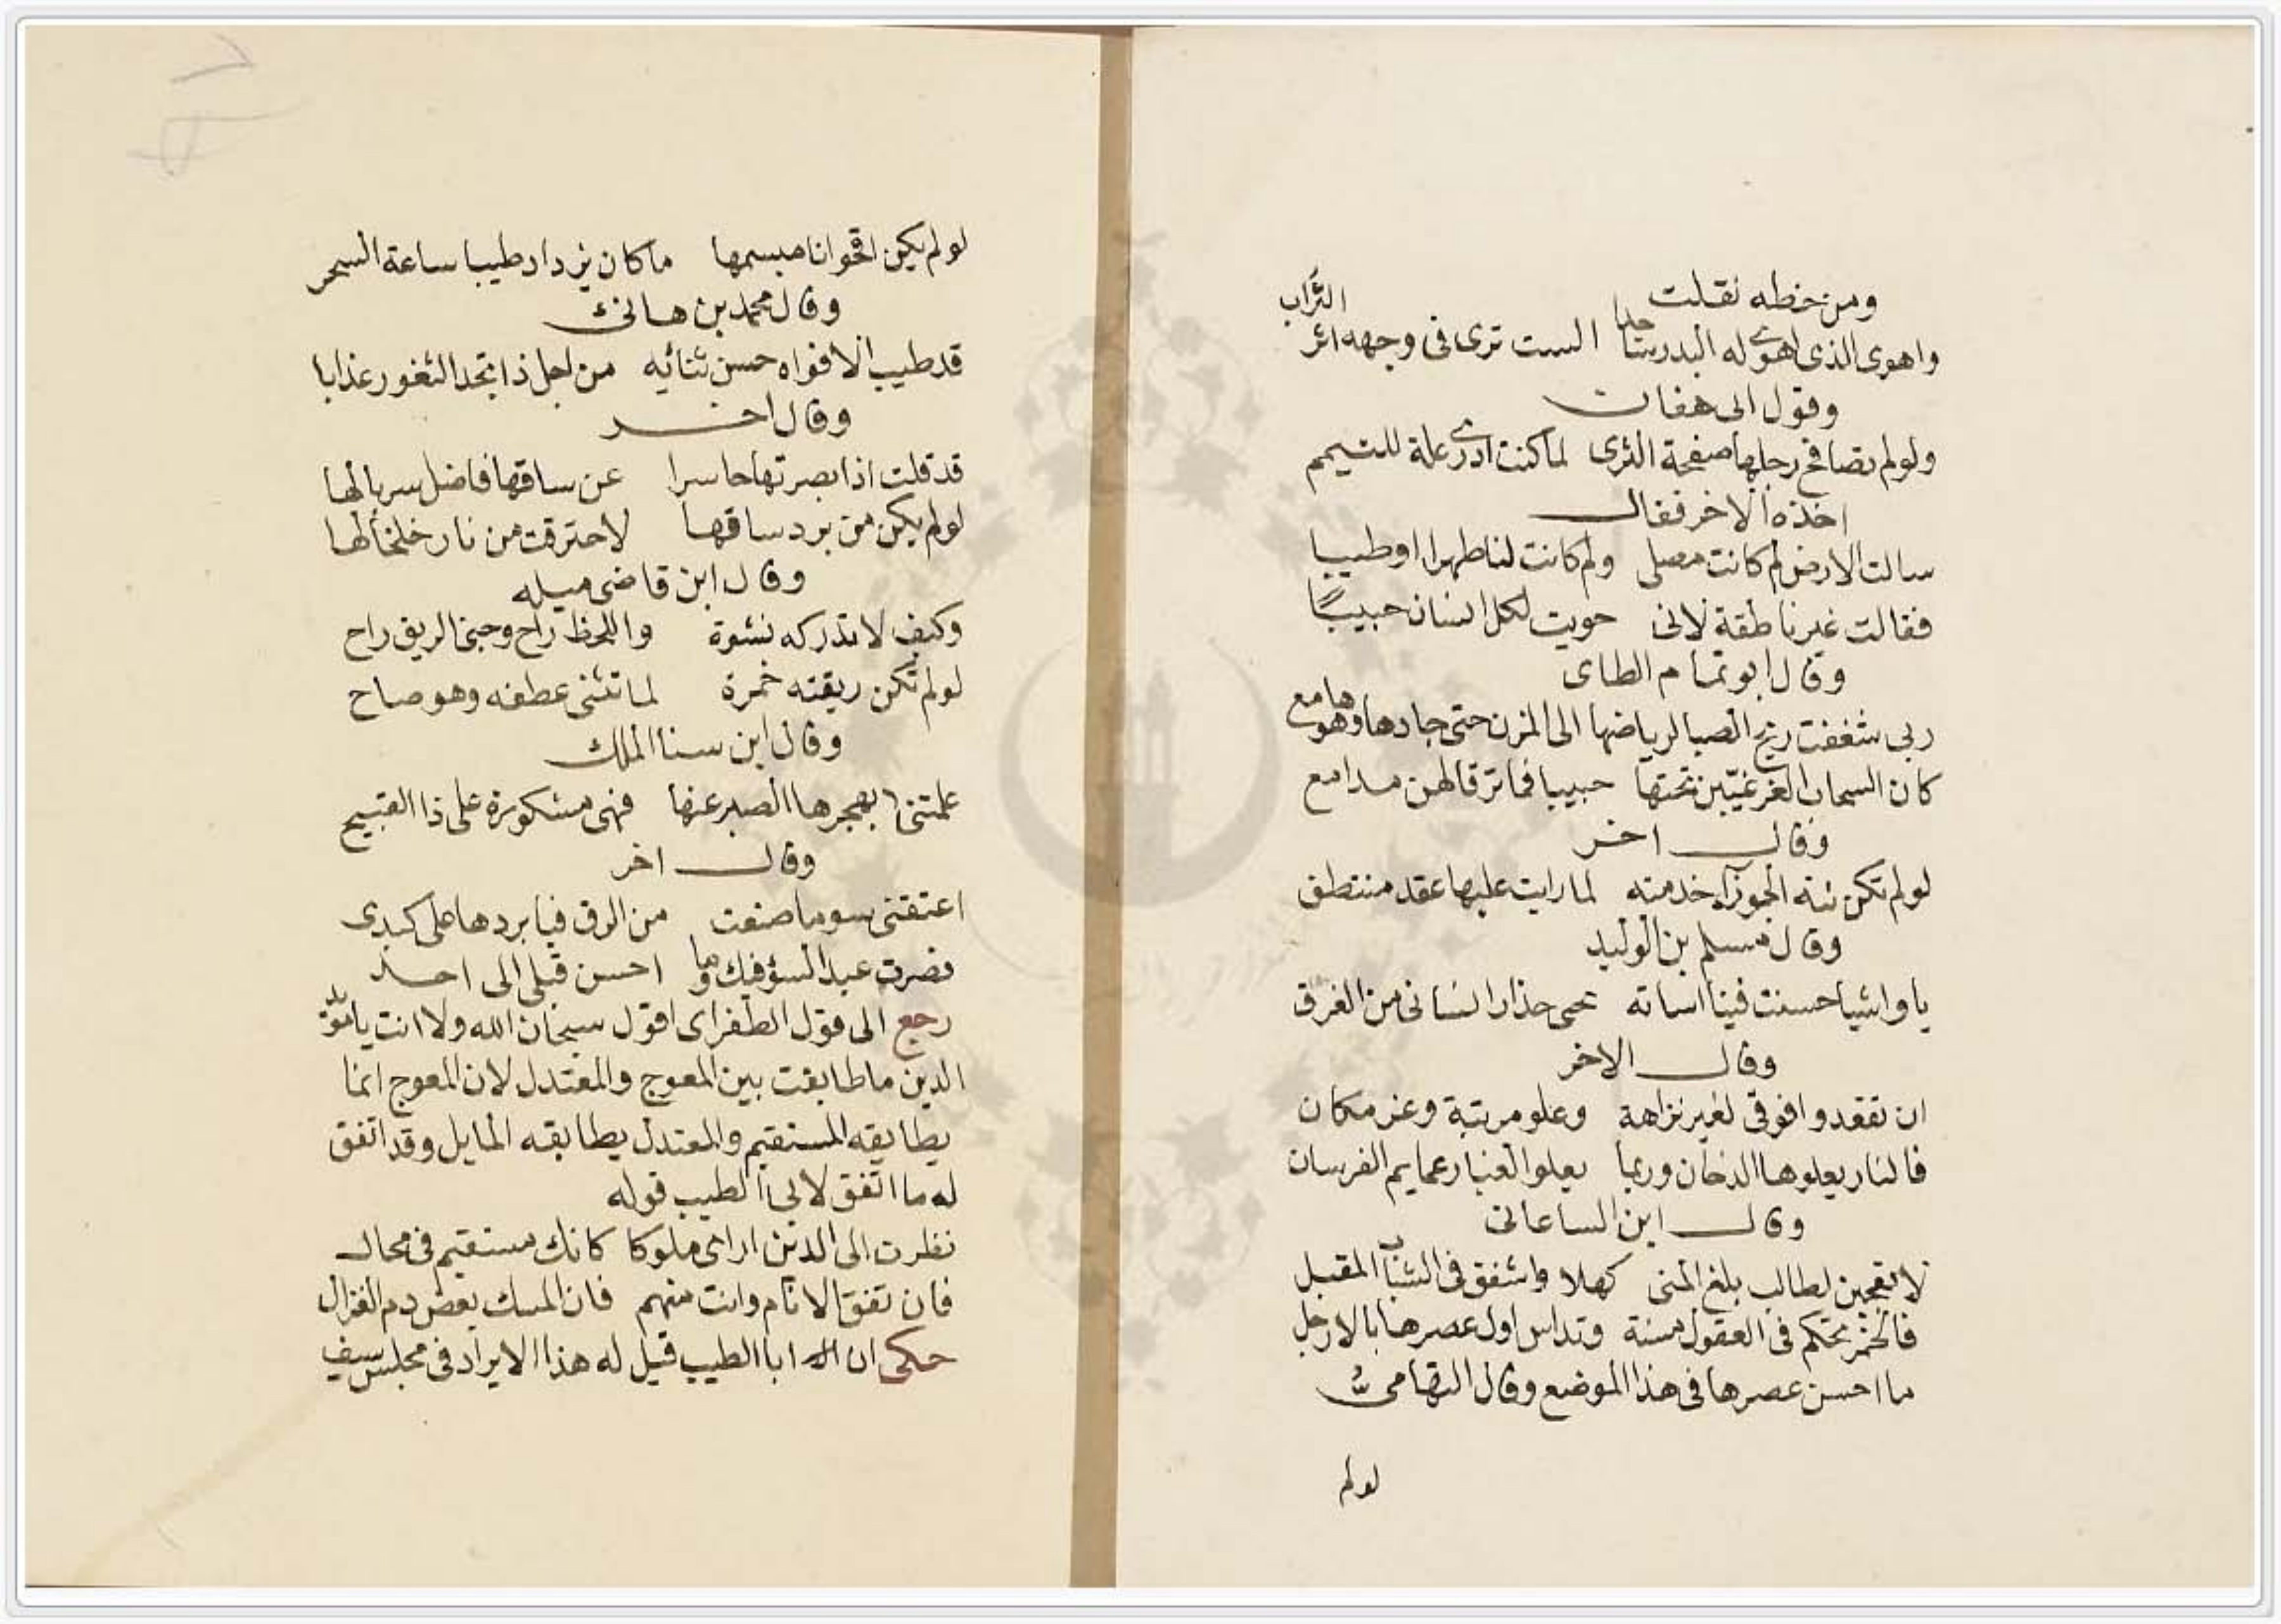 ومن خطه نقلت
واهوى الذى اهوى له البدر ساجدا الست ترى فى وجهه اثر التراب
وقول الى هفان
ولو لم تصافح رجلها صفحة الثرى لما كنت ادرى علة للتيمم
اخذه الاخر فقال
سالت الارض لم كانت مصلى ولم كانت لنا طهرا وطيبا
فقالت غير ناطقة لانى حويت لكل انسان حبيبا
وقال ابو تمام الطاى
ربى شغفت ريح الصبا لرياضها الى المزن حتى جادها وهو هامع
كان السحاب الغر غيبن تحتها حبيبا فما ترقا لهن مدامع
وقال اخر
لو لم تكن نية الجوزآء خدمته لما رايت عليها عقد منتطق
وقال مسلم بن الوليد
يا واشيا حسنت فينا اساته نجى حذارك انسانى من الغرق
وقال الاخر
ان تقعدوا فوقى لغير نزاهة وعلو مرتبة وعز مكان
فالنار يعلوها الدخان وربما يعلو الغبار عمايم الفرسان
وقال ابن الساعاتى
لا تعجبن لطالب بلغ المنى كهلا واشفق فى الشباب المقبل
فالخمر تحكم فى العقول مسنة وتداس اول عصرها بالارجل
ما احسن عصرها فى هذا الموضع وقال التهامى
لو لم
لو لم يكن اقحوانا مبسمها ما كان يزداد طيبا ساعة السحر
وقال محمد بن هانى
قد طيب الافواه حسن ثنائه من اجل ذا تجد الثغور عذابا
وقال اخر
قد قلت اذ ابصرتها حاسرا عن ساقها فاضل سربالها
لو لم يكن من برد ساقها لاحترقت من نار خلخالها
وقال ابن قاضى ميله
وكيف لا تدركه نشوة واللحظ راح وجنى الريق راح
لو لم تكن ريقته خمرة لما تثنى عطفه وهو صاح
وقال ابن سنا الملك
علمتنى بهجرها الصبر عنها فهى مشكورة على ذا القبيح
وقال اخر
اعتقنى سو ما صنعت من الرق فيا بردها على كبدى
فصرت عبدا لسؤ فيك وما احسن قبلى الى احد
رجع الى قول الطغراى اقول سبحان الله ولا انت يا مويد
الدين ما طابقت بين المعوج والمعتدل لان المعوج انما
يطابقه المستقيم والمعتدل يطابقه المايل وقد اتفق
له ما اتفق لابى الطيب قوله
نظرت الى الذين ارانى ملوكا كانك مستقيم فى محال
فان تفق الانام وانت منهم فان المسك بعض دم الغزال
حكى ان ابا الطيب قيل له هذا الايراد فى مجلس سيف